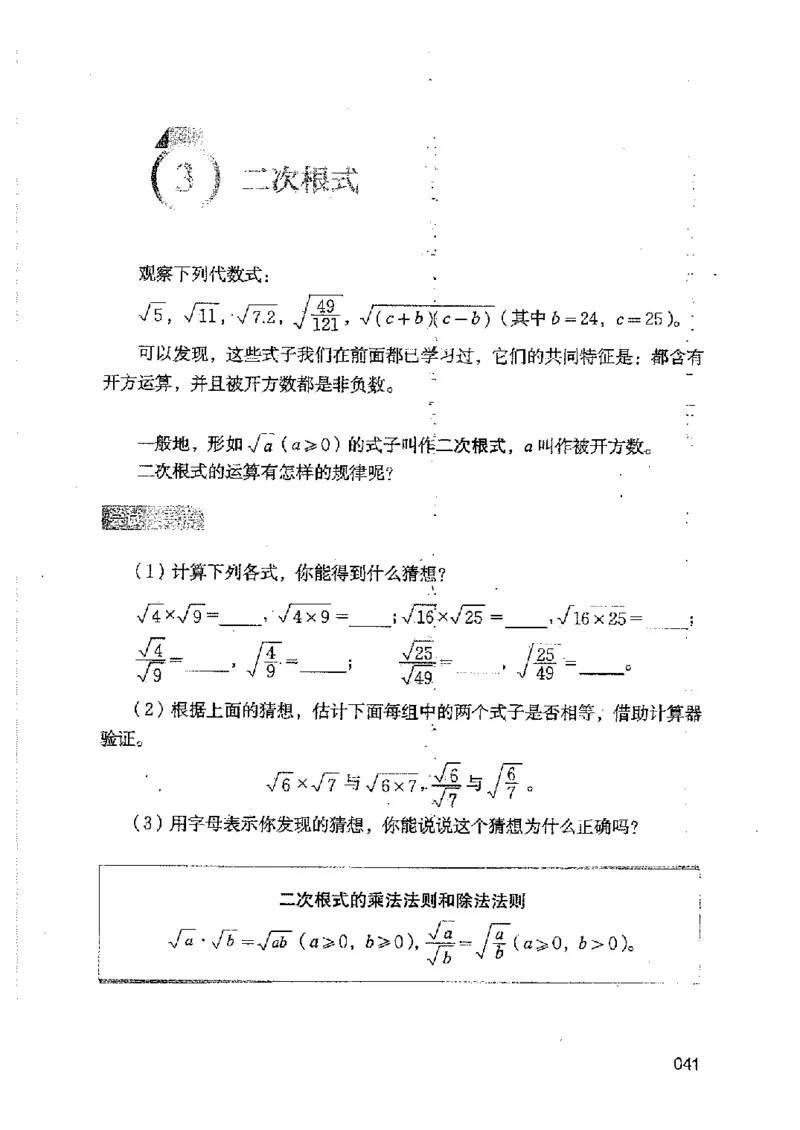 3 二次根式
观察下列代数式：
√5，√11，√7.2，√(49/121)，√((c+b)(c−b))（其中 b=24，c=25）。
可以发现，这些式子我们在前面都已学习过，它们的共同特征是：都含有
开方运算，并且被开方数都是非负数。
一般地，形如 √a（a⩾0）的式子叫作二次根式，a 叫作被开方数。
二次根式的运算有怎样的规律呢？
（1）计算下列各式，你能得到什么猜想？
√4×√9=____，√(4×9)=____；√16×√25=____，√(16×25)=____；
√4/√9=____，√(4/9)=____；√25/√49=____，√(25/49)=____。
（2）根据上面的猜想，估计下面每组中的两个式子是否相等，借助计算器
验证。
√6×√7 与 √(6×7)，√6/√7 与 √(6/7)。
（3）用字母表示你发现的猜想，你能说说这个猜想为什么正确吗？
二次根式的乘法法则和除法法则
√a·√b=√(ab)（a⩾0，b⩾0），√a/√b=√(a/b)（a⩾0，b>0）。
041